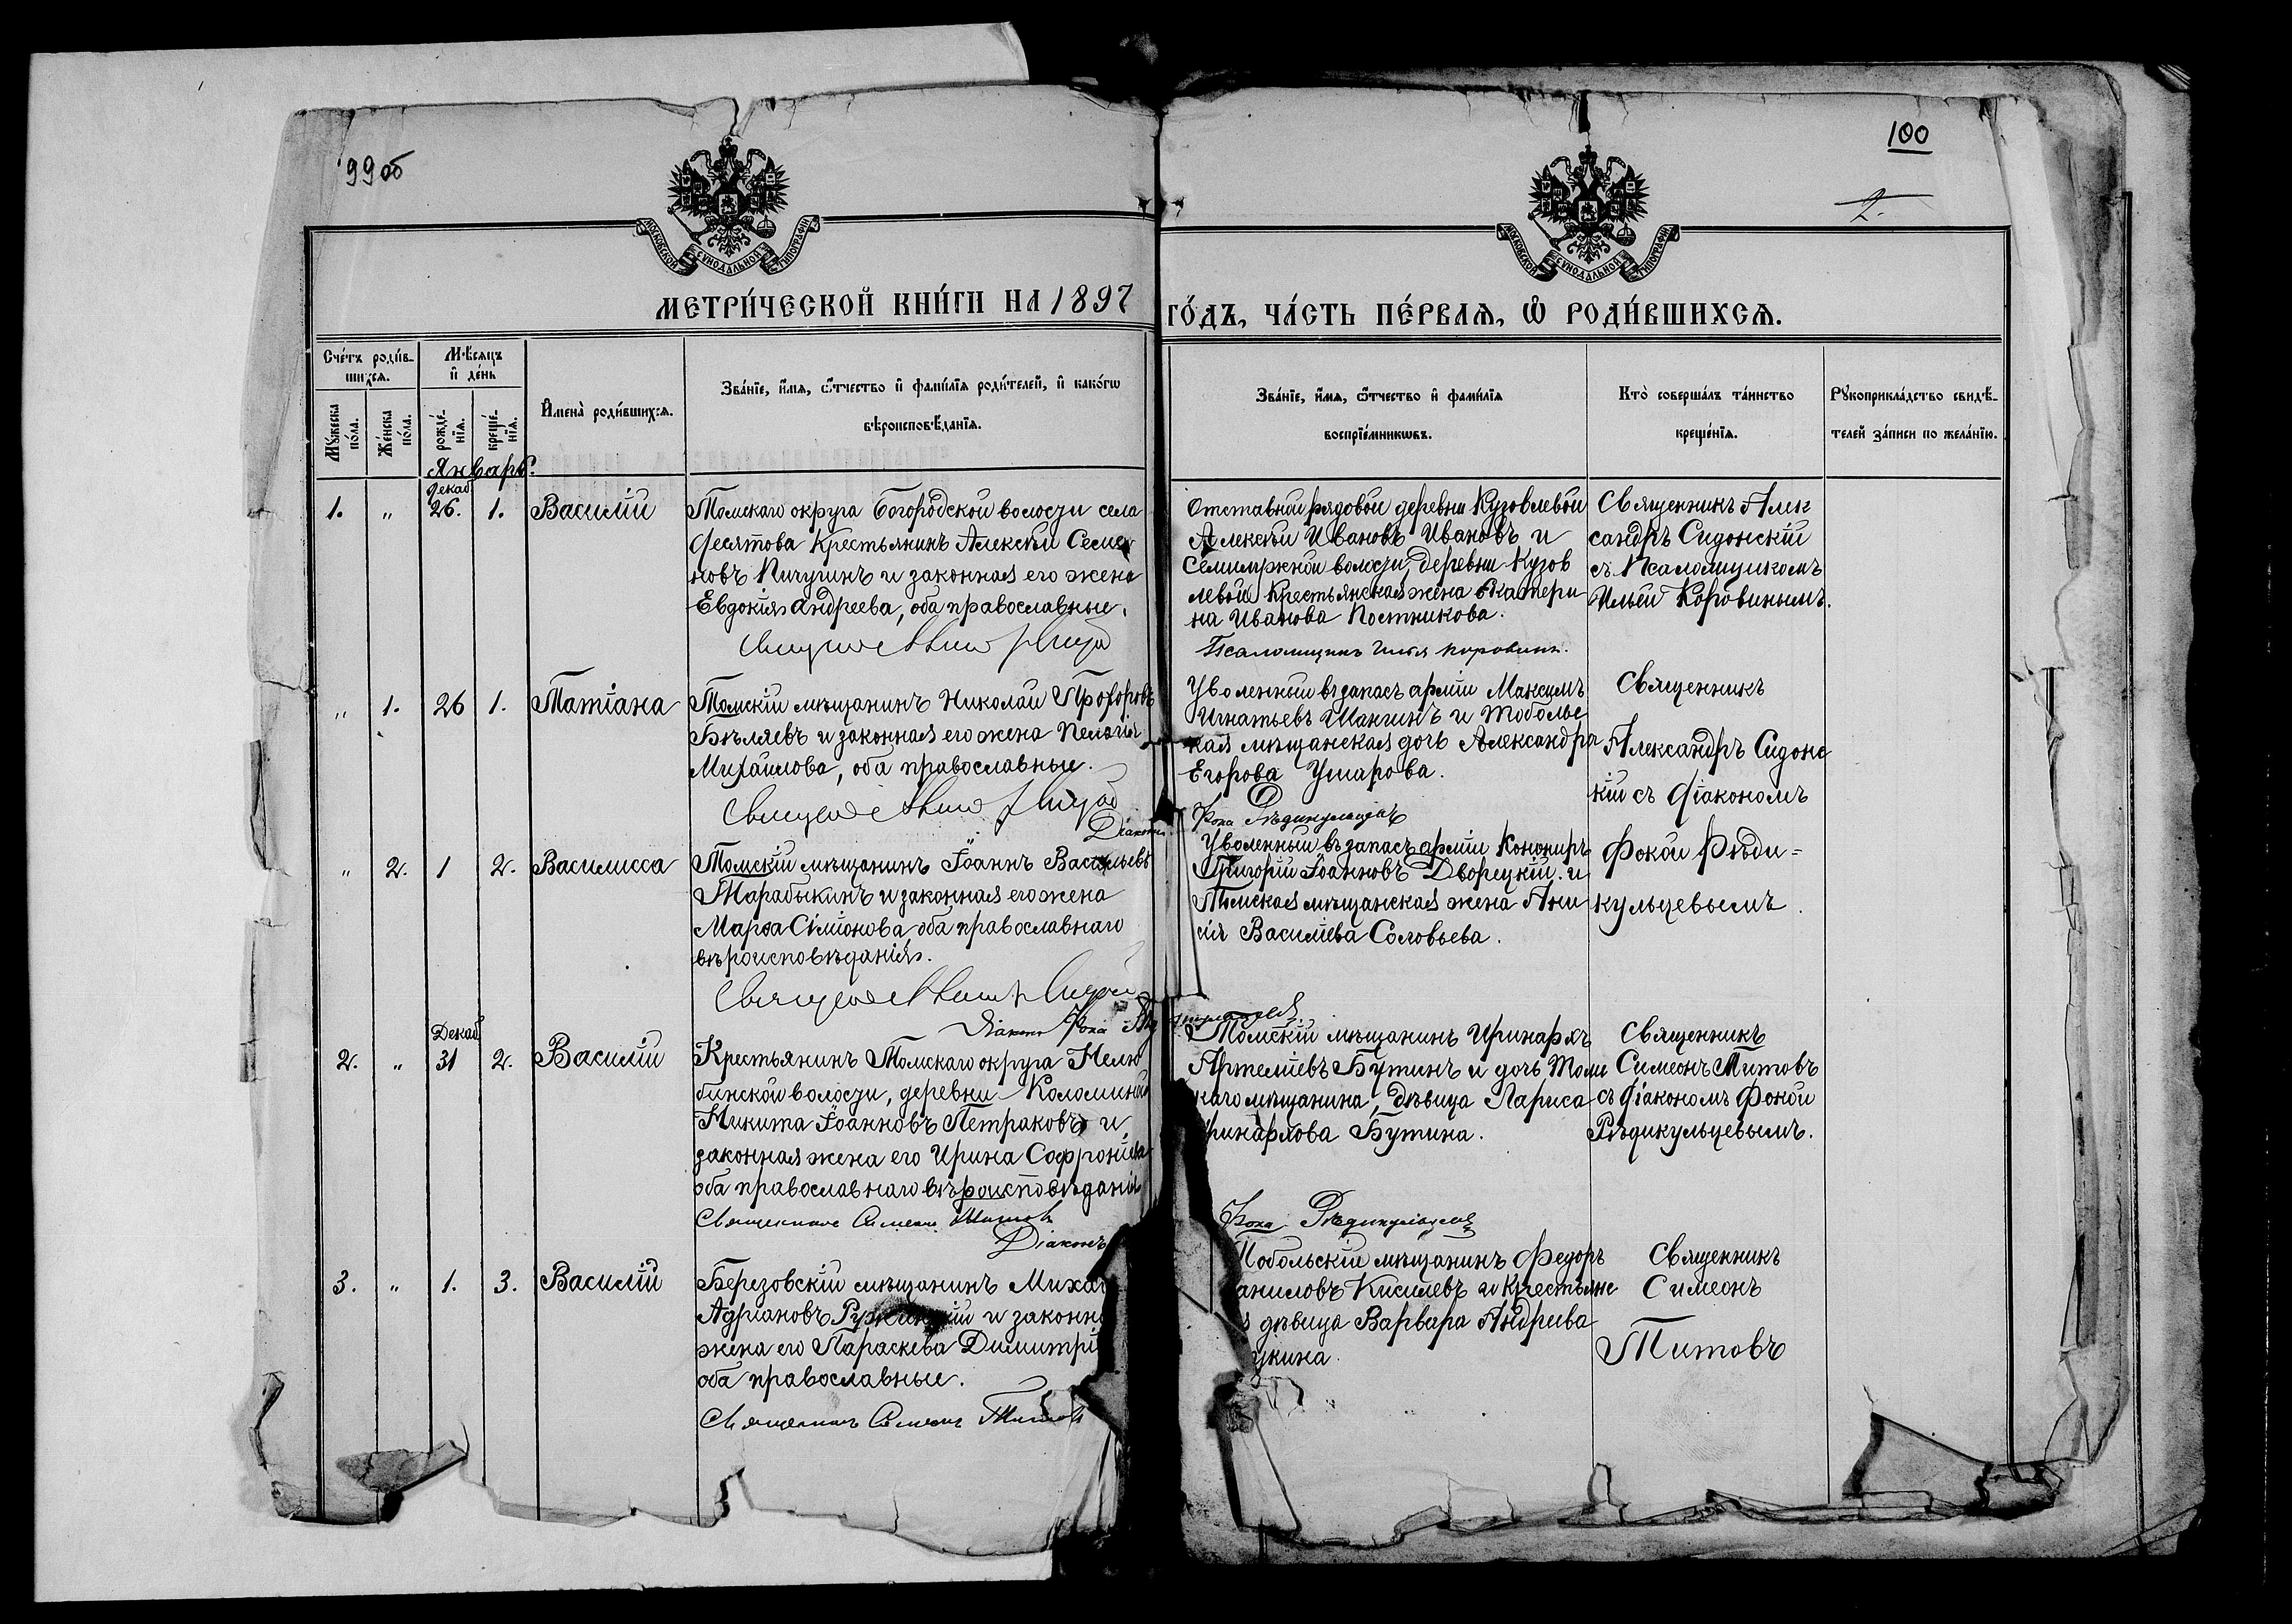 99 об
100
2.
МОСКОВСКОЙ СѴНОДАЛЬНОЙ ТИПОГРАФІИ
МОСКОВСКОЙ СѴНОДАЛЬНОЙ ТИПОГРАФІИ
МЕТРИ́ЧЕСКОЙ КНИ́ГИ НА 1897
ГО́ДЪ, ЧА́СТЬ ПЕ́РВАѦ, Ѡ҆ РОДИ́ВШИХСѦ.
Сче́тъ роди́в-
шихсѧ.
Мѣ́сѧцъ
и҆ де́нь
Мꙋ́жеска
по́ла.
Же́нска
по́ла.
рожде́-
нїѧ.
креще́-
нїѧ.
И҆мена̀ роди́вшихсѧ.
Зва́нїе, и҆́мѧ, ѻ҆́тчество и҆ фами́лїѧ роди́телей, и҆ како́гѡ
вѣроисповѣ́данїѧ.
Зва́нїе, и҆́мѧ, ѻ҆́тчество и҆ фами́лїѧ
воспрїе́мникѡвъ.
Кто̀ соверша́лъ та́инство
креще́нїѧ.
Рꙋкоприкла́дство свидѣ́-
телей за́писи по жела́нїю.
Январь.
Декаб.
1. " 26. 1. Василій
Томскаго округа Богородской волости села
Десятова Крестьянинъ Алексѣй Семе
новъ Пичугинъ и законная его жена
Евдокія Андреева, оба православные.
Отставной рядовой деревни Кузовлевой
Алексѣй Ивановъ Ивановъ и
Семилужной волости, деревни Кузов
левой Крестьянская жена Екатери
на Иванова Постникова.
Псаломщикъ Илья Коровинъ.
Священникъ Алек
сандръ Сидонскій
съ Псаломщикомъ
Ильей Коровинымъ.
" 1. 26 1. Татіана
Томскій мѣщанинъ Николай Прохоровъ
Бѣляевъ и законная его жена Пелагія
Михайлова, оба православные.
Діаконъ
Уволенный въ запасъ арміи Максимъ
Игнатьевъ Шангинъ и тобольс
кая мѣщанская дочь Александра
Егорова Ушарова.
Фока Рѣдикульцевъ
Священникъ
Александръ Сидонс
кій съ Діакономъ
" 2. 1 2. Василисса
Томскій мѣщанинъ Іоаннъ Васильевъ
Тарабыкинъ и законная его жена
Марѳа Сіміонова оба православнаго
вѣроисповѣданія.
Діаконъ Фока
Уволенный въ запасъ арміи Канониръ
Григорій Іоанновъ Дворецкій и
Томская мѣщанская жена Ани
сія Василіева Соловьева.
Фокой Рѣди=
кульцевымъ.
Декаб.
2. " 31 2. Василій
Крестьянинъ Томскаго округа Нелю
бинской волости, деревни Коломиной
Никита Іоанновъ Петраковъ и
законная жена его Ирина Софроніева
оба православнаго вѣроисповѣданія
Священникъ Симеонъ Титовъ
Діаконъ
Томскій мѣщанинъ Иринархъ
Артеміевъ Бутинъ и дочь Томс
каго мѣщанина, дѣвица Лариса
ринархова Бутина.
Фока Рѣдикульцевъ
Священникъ
Симеонъ Титовъ
съ Діакономъ Фокой
Рѣдикульцевымъ.
3. " 1. 3. Василій
Березовскій мѣщанинъ Миха
Адріановъ и законн
жена его Параскева Димитрі
оба православные.
Священникъ Симеонъ Титовъ
Тобольскій мѣщанинъ Федоръ
аниловъ Киселевъ и Крестьянс
дѣвица Варвара Андреева
укина.
Священникъ
Симеонъ
Титовъ